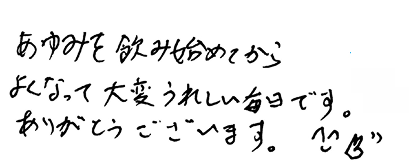 あゆみを飲み始めてから
よくなって大変うれしい毎日です。
ありがとうございます。